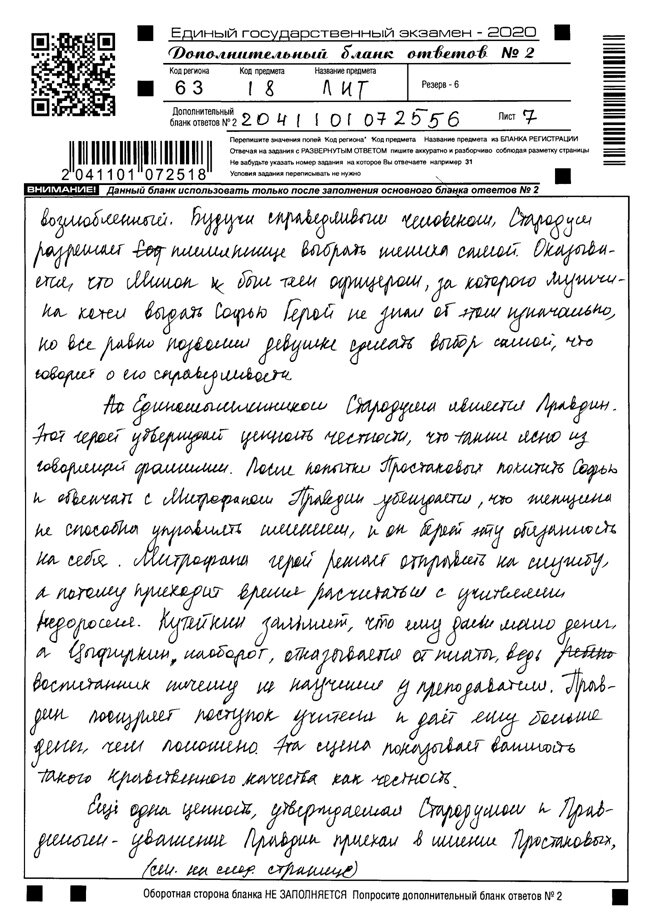 Единый государственный экзамен - 2020
Дополнительный бланк ответов № 2
Код региона Код предмета Название предмета
63 18 ЛИТ Резерв - 6
Дополнительный бланк ответов № 2 2041101072556 Лист 7
Перепишите значения полей "Код региона" "Код предмета" "Название предмета" из БЛАНКА РЕГИСТРАЦИИ
Отвечая на задания с РАЗВЕРНУТЫМ ОТВЕТОМ пишите аккуратно и разборчиво соблюдая разметку страницы
Не забудьте указать номер задания на которое Вы отвечаете например 31
Условия задания переписывать не нужно
2 041101 072518
ВНИМАНИЕ! Данный бланк использовать только после заполнения основного бланка ответов № 2
возлюбленный. Будучи справедливым человеком, Стародум
разрешает племяннице выбрать жениха самой. Оказыва-
ется, что Милон и был тем офицером, за которого мужчи-
на хотел выдать Софью Герой не знал об этом изначально,
но все равно позволил девушке сделать выбор самой, что
говорит о его справедливости
Единомышленником Стародума является Правдин.
Этот герой утверждает ценность честности, что также ясно из
говорящей фамилии. После попытки Простаковых похитить Софью
и обвенчать с Митрофаном Правдин убеждается, что женщина
не способна управлять имением, и он берет эту обязанность
на себя. Митрофана герой решает отправить на службу,
а потому приходит время расчитаться с учителями
недоросля. Кутейкин заявляет, что ему дали мало денег,
а Цыфиркин, наоборот, отказывается от платы, ведь
воспитанник ничему не научился у преподавателя. Прав-
дин поощряет поступок учителя и даёт ему больше
денег, чем положено. Эта сцена показывает важность
такого нравственного качества как честность.
Ещё одна ценность, утверждаемая Стародумом и Прав-
диным - уважение Правдин приехал в имение Простаковых,
(см. на след странице)
Оборотная сторона бланка НЕ ЗАПОЛНЯЕТСЯ Попросите дополнительный бланк ответов № 2